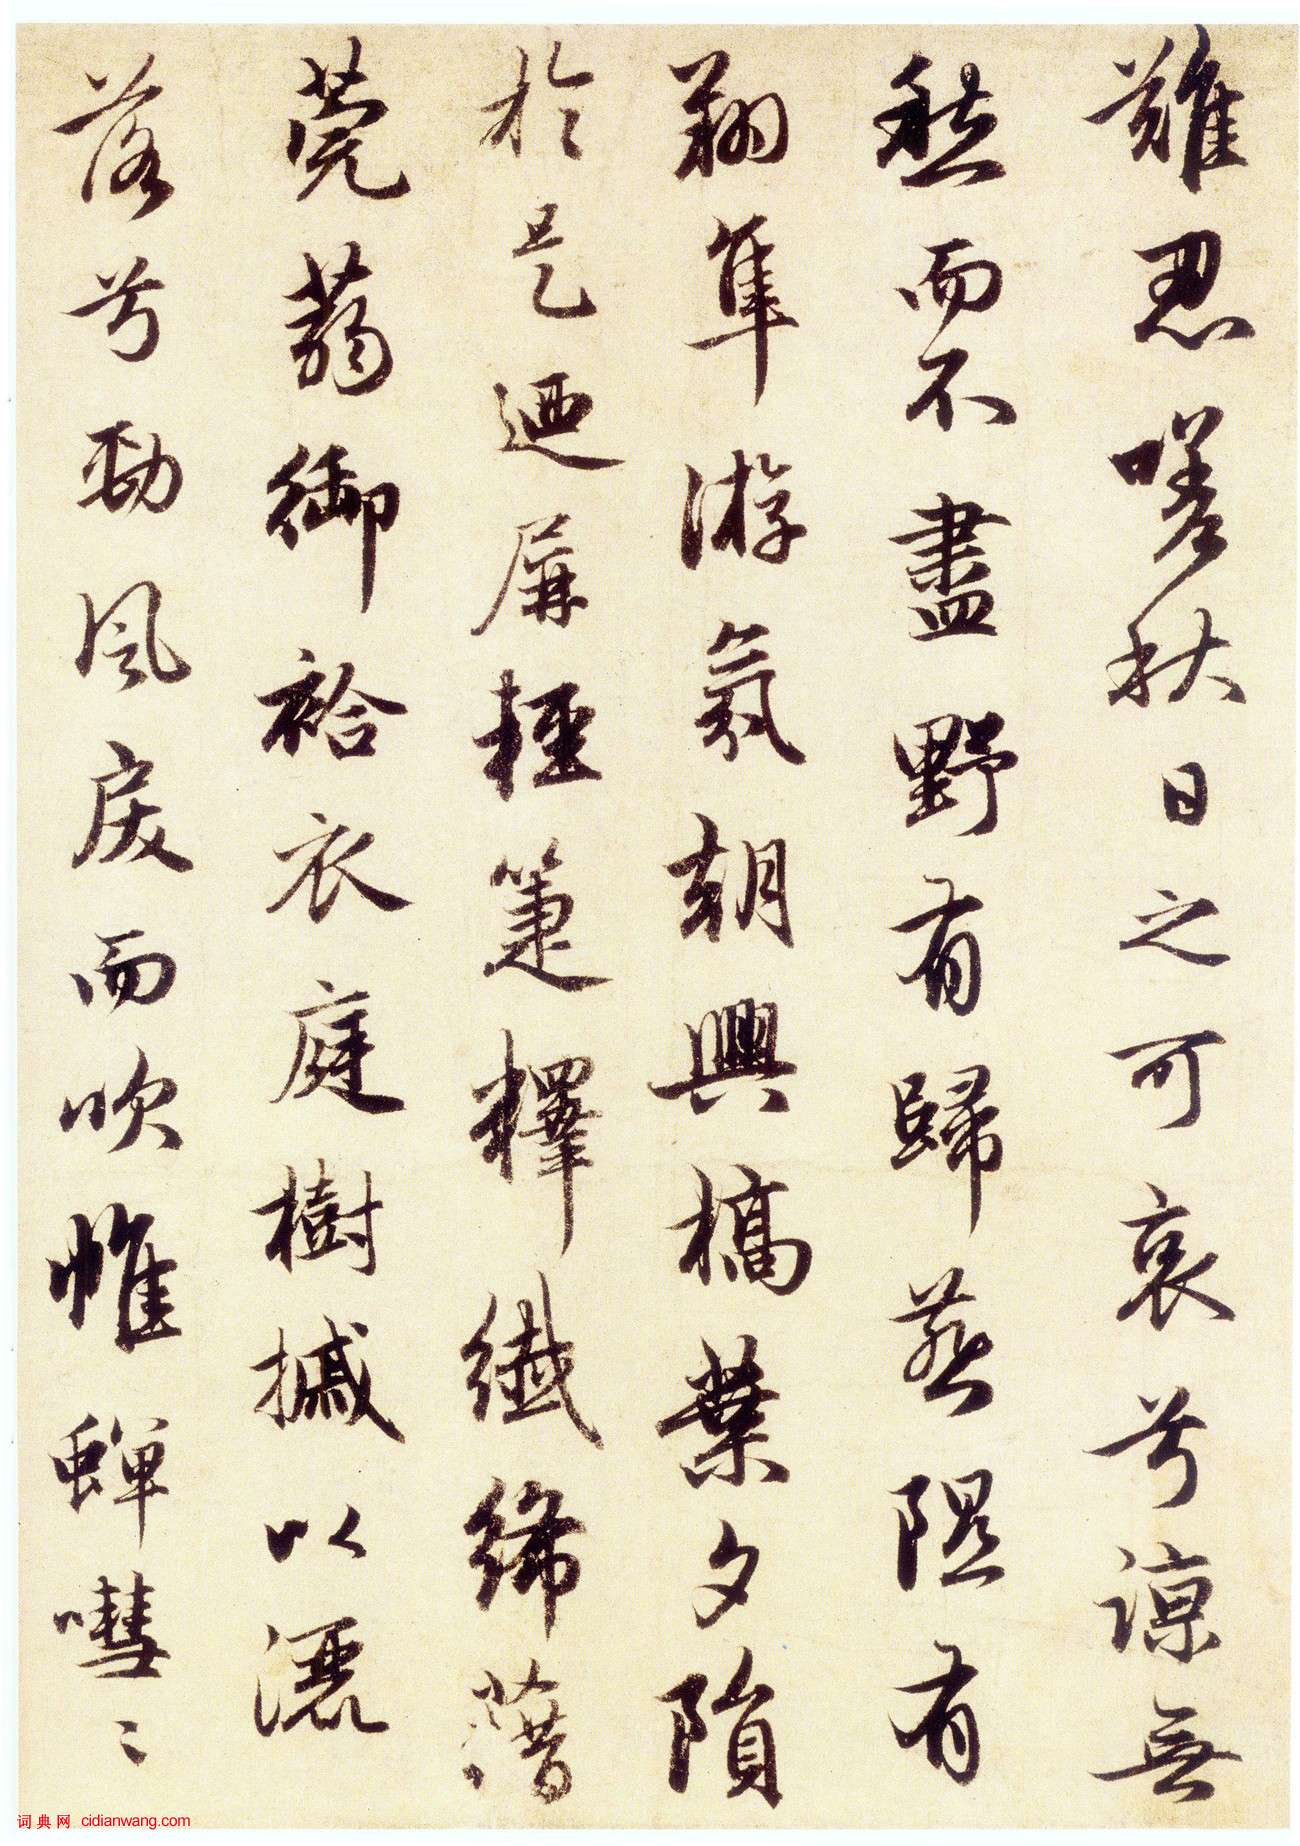 難忍嗟秋日之可哀兮諒無
愁而不盡野有歸燕隰有
翔隼游氛朝興槁葉夕隕
於是迺屏輕箑釋纖絺藉
莞蒻御袷衣庭樹摵以灑
落兮勁風戾而吹帷蟬嘒〻
词典网 cidianwang.com